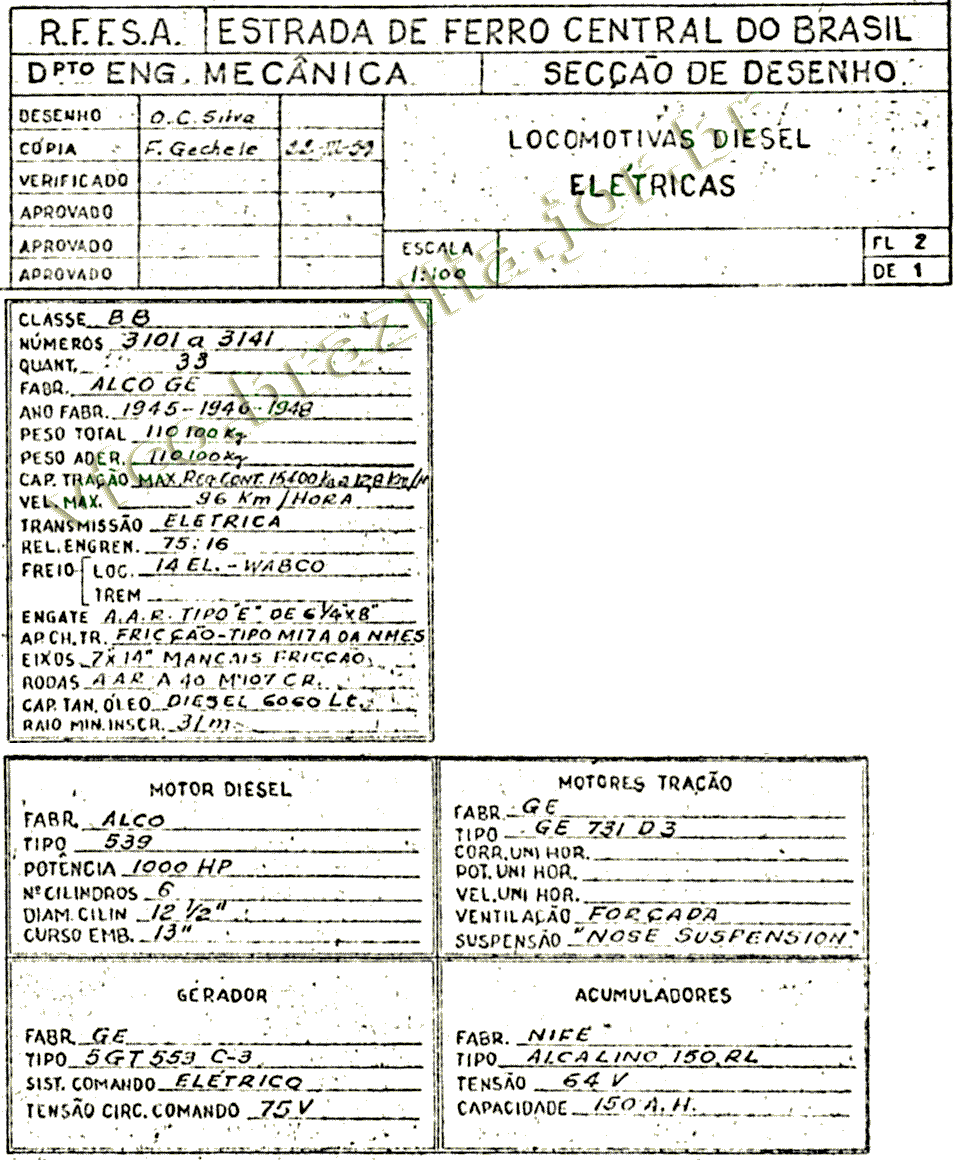 R.F.F.S.A. ESTRADA DE FERRO CENTRAL DO BRASIL
DPTO ENG. MECÂNICA SECÇÃO DE DESENHO
DESENHO O.C. Silva
CÓPIA F. Gechele
VERIFICADO
APROVADO
APROVADO
APROVADO
LOCOMOTIVAS DIESEL
ELÉTRICAS
ESCALA
1:100
FL 2
DE 1
CLASSE BB
NÚMEROS 3101 a 3141
QUANT. 33
FABR. ALCO GE
ANO FABR. 1945-1946-1948
PESO TOTAL 110100 Kg
PESO ADER. 110100 Kg
CAP. TRAÇÃO MAX. REG. CONT.
VEL. MAX. 96 Km/HORA
TRANSMISSÃO ELETRICA
REL. ENGREN. 75:16
FREIO LOC. 14 EL. - WABCO
TREM
ENGATE A.A.R. TIPO "E" DE 6 1/4" x 8"
AP. CH. TR. FRICÇÃO-TIPO M17A DA NMES
EIXOS 7 x 14" MANCAIS FRICCÃO
RODAS AAR A 40 M'107 CR.
CAP. TAN. ÓLEO DIESEL 6060 Lt.
RAIO MIN. INSCR. 31m
MOTOR DIESEL
FABR. ALCO
TIPO 539
POTÊNCIA 1000 HP
Nº CILINDROS 6
DIAM. CILIN 12 1/2"
CURSO EMB. 13"
MOTORES TRAÇÃO
FABR. GE
TIPO GE 731 D3
CORR. UNI HOR.
POT. UNI HOR.
VEL. UNI HOR.
VENTILAÇÃO FORÇADA
SUSPENSÃO "NOSE SUSPENSION"
GERADOR
FABR. GE
TIPO 5GT 553 C-3
SIST. COMANDO ELÉTRICO
TENSÃO CIRC. COMANDO 75V
ACUMULADORES
FABR. NIFE
TIPO ALCALINO 150 RL
TENSÃO 64 V
CAPACIDADE 150 A.H.
vfco.brazilia.jor.br